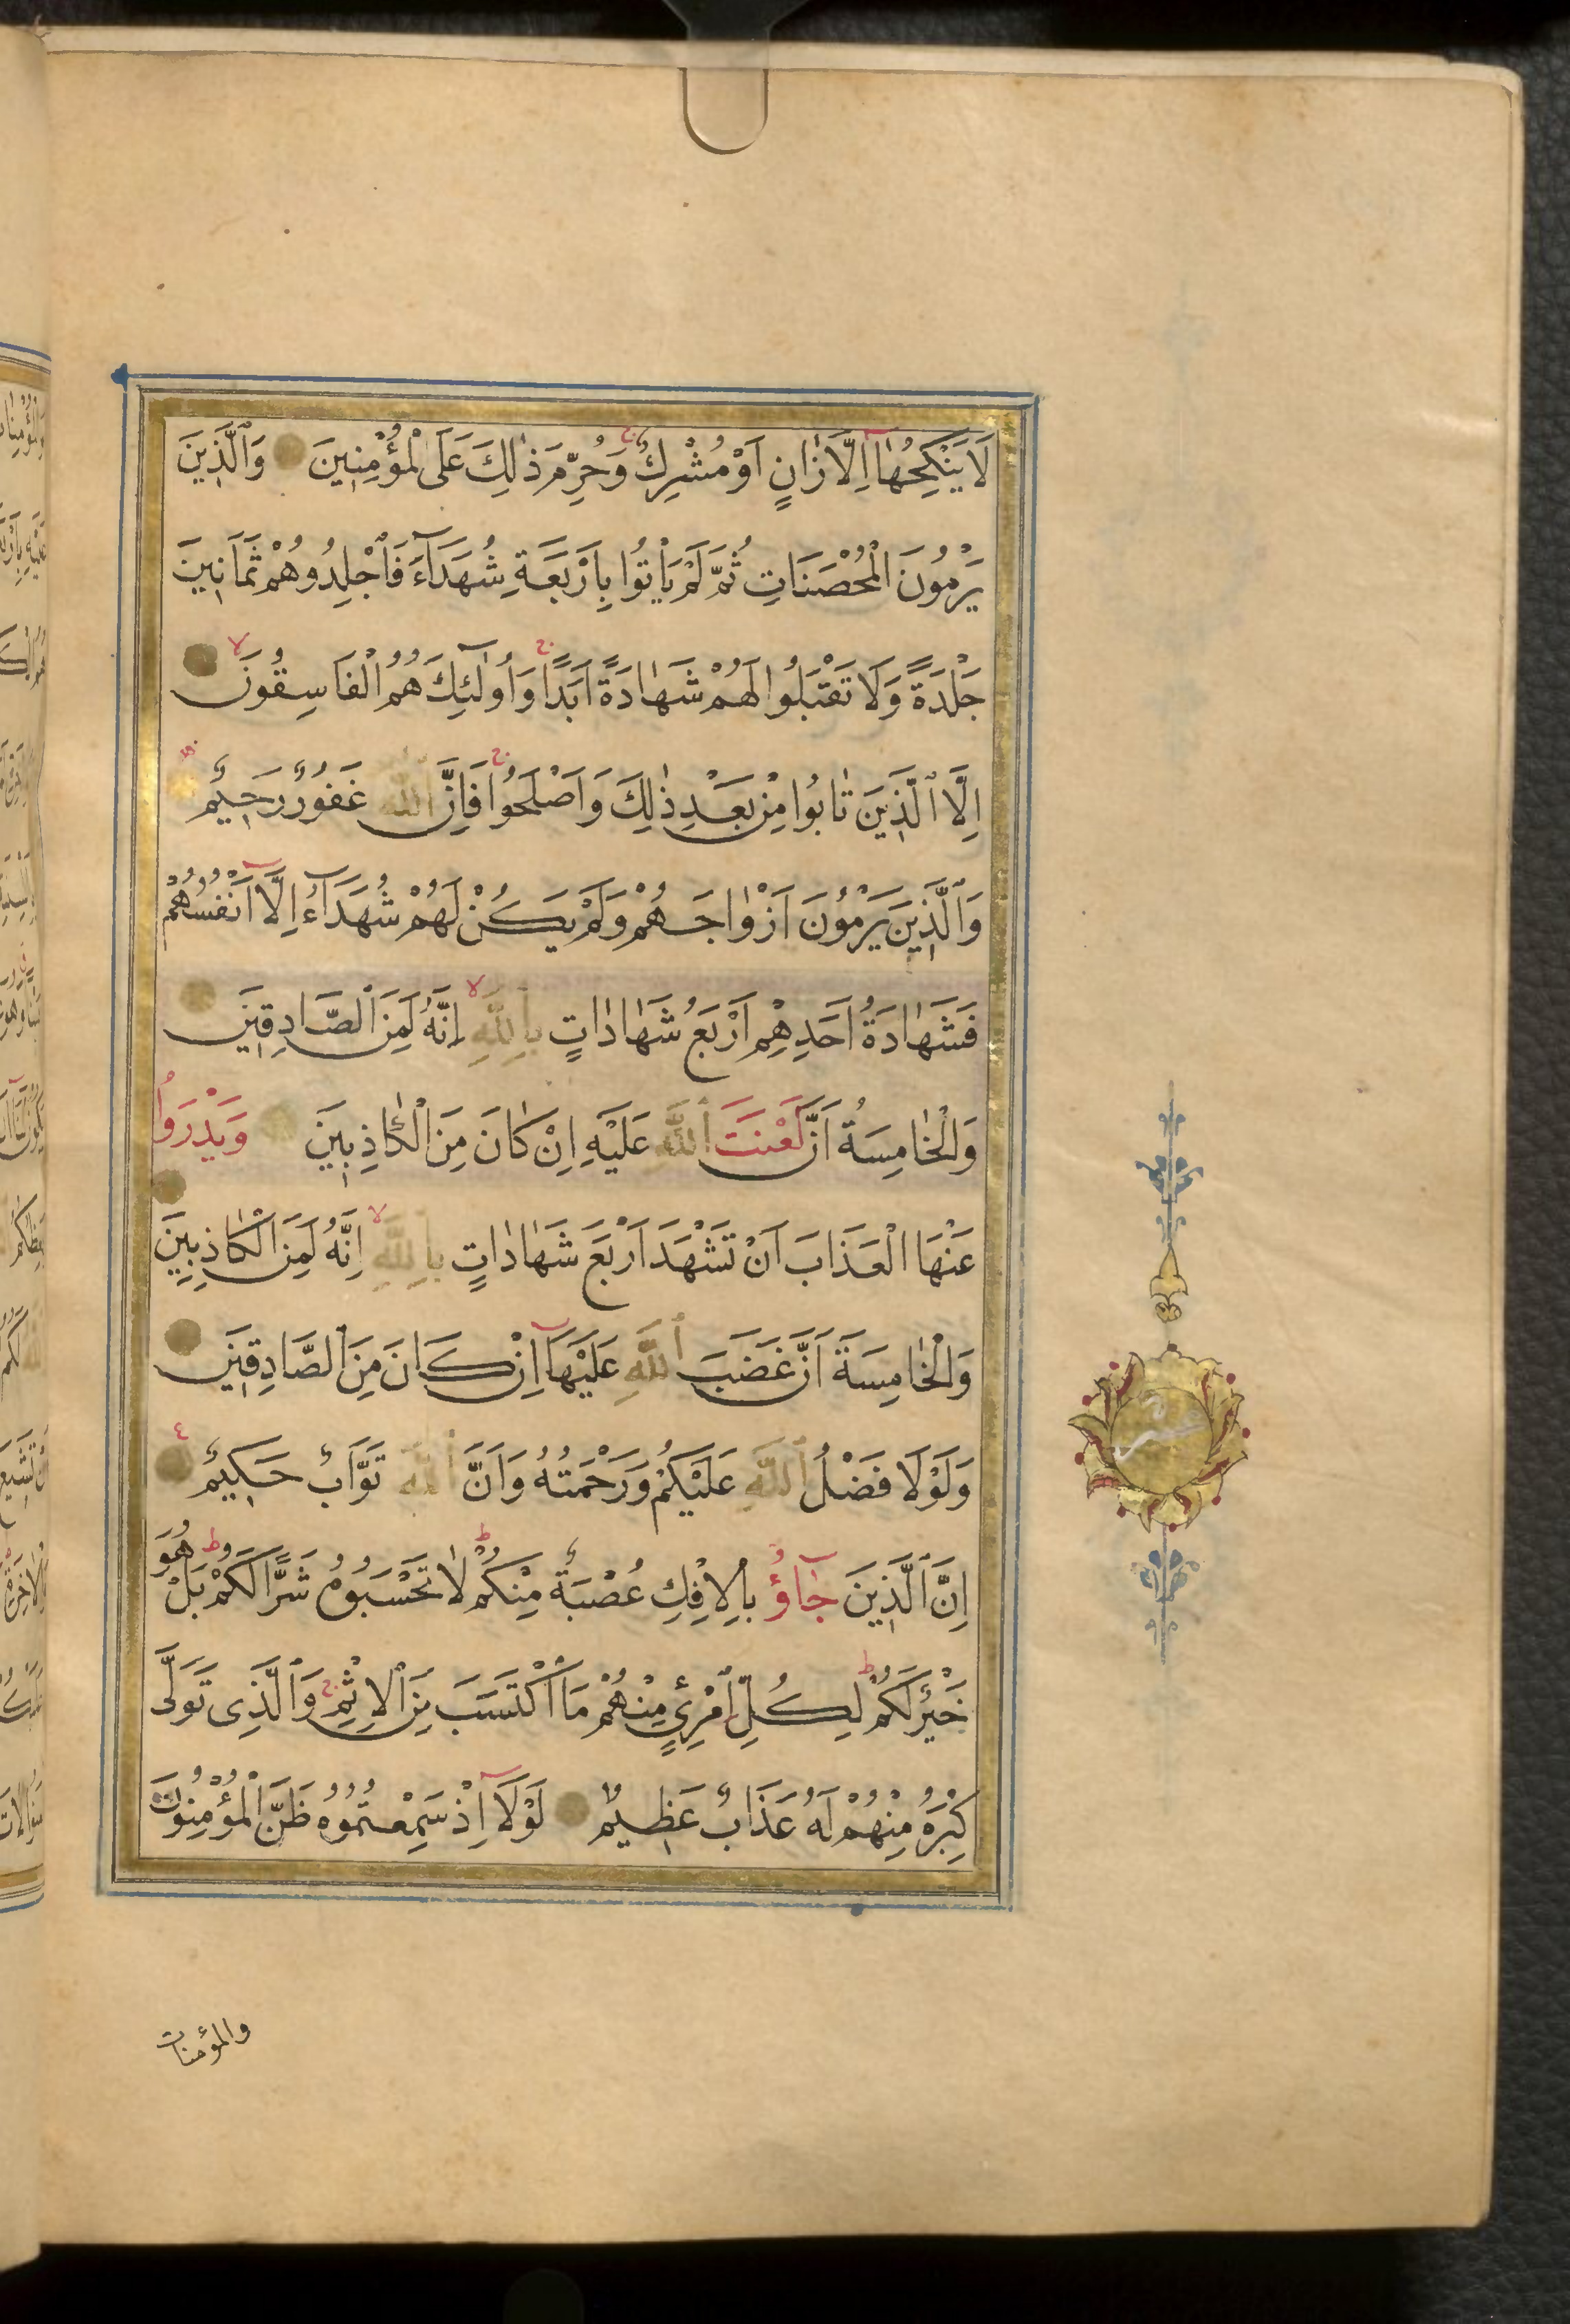 لَا يَنْكِحُهَٓا اِلَّا زَانٍ اَوْ مُشْرِكٌ ج وَحُرِّمَ ذٰلِكَ عَلَى الْمُؤْمِنِينَ وَالَّذِينَ
يَرْمُونَ الْمُحْصَنَاتِ ثُمَّ لَمْ يَاْتُوا بِاَرْبَعَةِ شُهَدَٓاءَ فَاجْلِدُوهُمْ ثَمَانِينَ
جَلْدَةً وَلَا تَقْبَلُوا لَهُمْ شَهَادَةً اَبَدًا ج وَاُولٰٓئِكَ هُمُ الْفَاسِقُونَ لا
اِلَّا الَّذِينَ تَابُوا مِنْ بَعْدِ ذٰلِكَ وَاَصْلَحُوا ج فَاِنَّ اللّٰهَ غَفُورٌ رَحِيمٌ
وَالَّذِينَ يَرْمُونَ اَزْوَاجَهُمْ وَلَمْ يَكُنْ لَهُمْ شُهَدَٓاءُ اِلَّٓا اَنْفُسُهُمْ
فَشَهَادَةُ اَحَدِهِمْ اَرْبَعُ شَهَادَاتٍ بِاللّٰهِ لا اِنَّهُ لَمِنَ الصَّادِقِينَ
وَالْخَامِسَةُ اَنَّ لَعْنَتَ اللّٰهِ عَلَيْهِ اِنْ كَانَ مِنَ الْكَاذِبِينَ وَيَدْرَؤُا
عَنْهَا الْعَذَابَ اَنْ تَشْهَدَ اَرْبَعَ شَهَادَاتٍ بِاللّٰهِ لا اِنَّهُ لَمِنَ الْكَاذِبِينَ
وَالْخَامِسَةَ اَنَّ غَضَبَ اللّٰهِ عَلَيْهَٓا اِنْ كَانَ مِنَ الصَّادِقِينَ
وَلَوْلَا فَضْلُ اللّٰهِ عَلَيْكُمْ وَرَحْمَتُهُ وَاَنَّ اللّٰهَ تَوَّابٌ حَكِيمٌ ع
اِنَّ الَّذِينَ جَٓاؤُ بِالْاِفْكِ عُصْبَةٌ مِنْكُمْ ط لَا تَحْسَبُوهُ شَرًّا لَكُمْ ط بَلْ هُوَ
خَيْرٌ لَكُمْ ط لِكُلِّ امْرِئٍ مِنْهُمْ مَا اكْتَسَبَ مِنَ الْاِثْمِ ج وَالَّذِى تَوَلّٰى
كِبْرَهُ مِنْهُمْ لَهُ عَذَابٌ عَظِيمٌ لَوْلَٓا اِذْ سَمِعْتُمُوهُ ظَنَّ الْمُؤْمِنُونَ
والمؤمنات